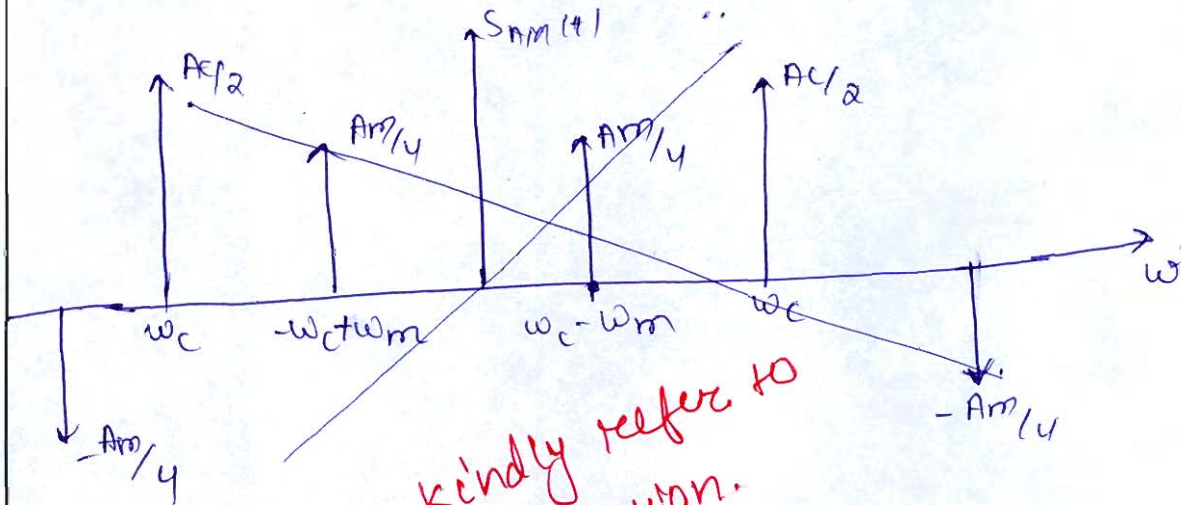 S_AM(t)
Ac/2
Ac/2
Am/4
Am/4
ω
ωc
-ωc+ωm
ωc-ωm
ωc
-Am/4
-Am/4
kindly refer to